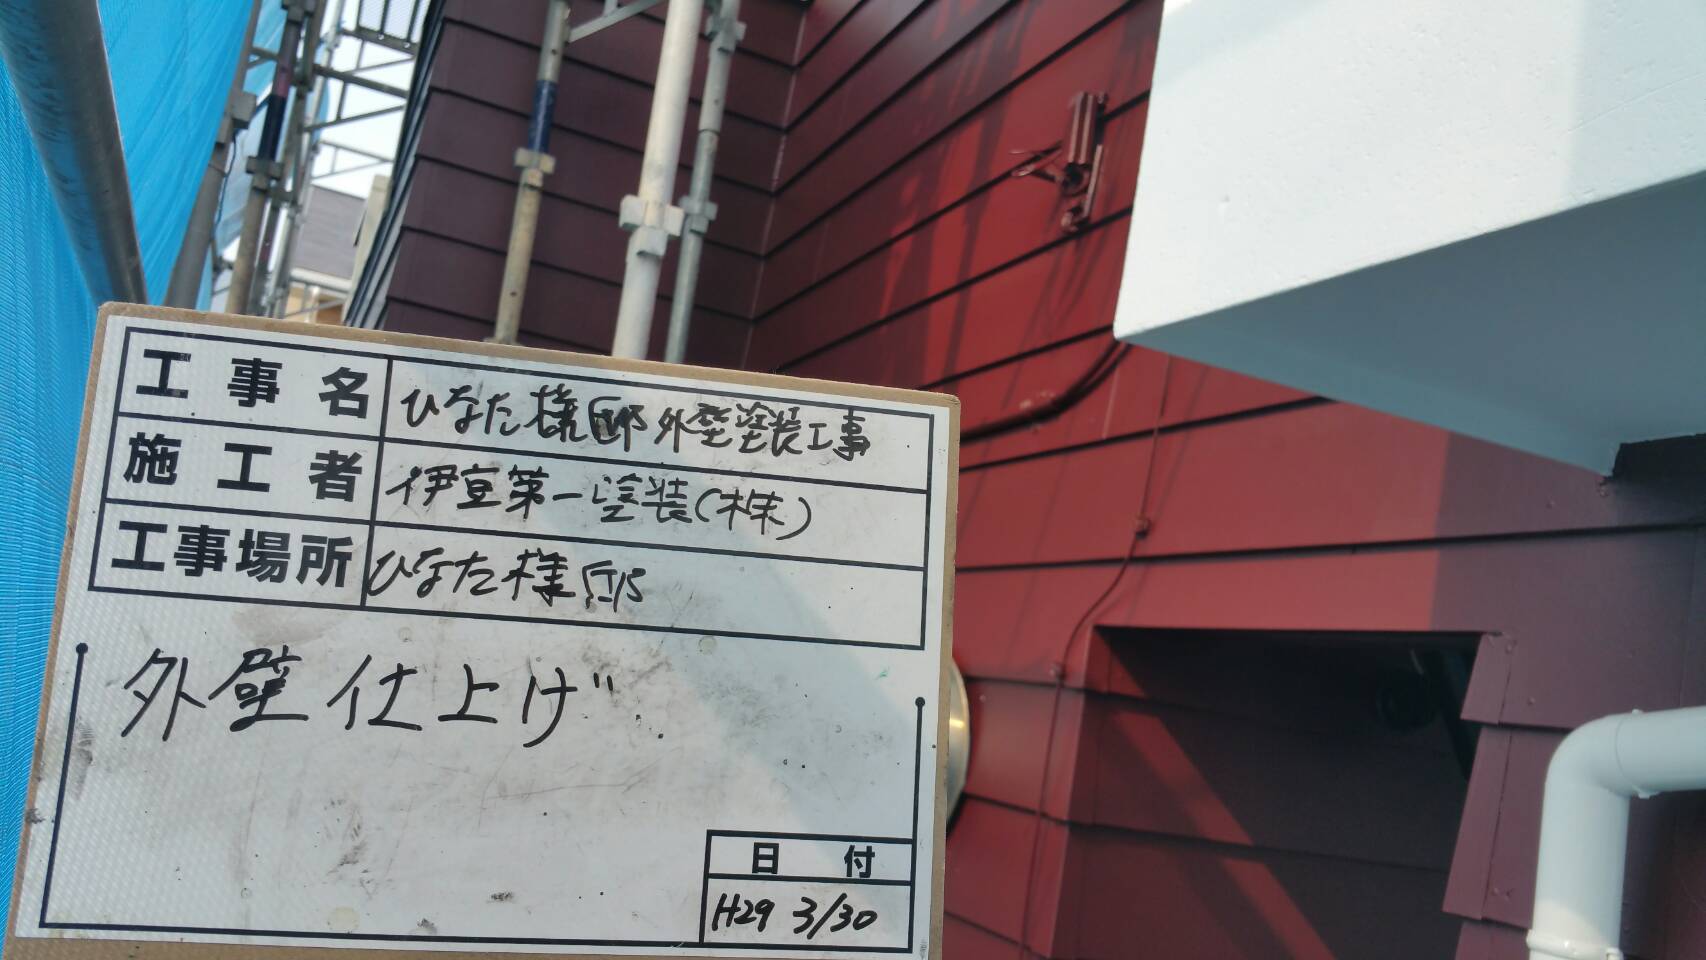 工事名 ひなた様邸外壁塗装工事
施工者 伊豆第一塗装(株)
工事場所 ひなた様邸
外壁仕上げ
日付
H29 3/30